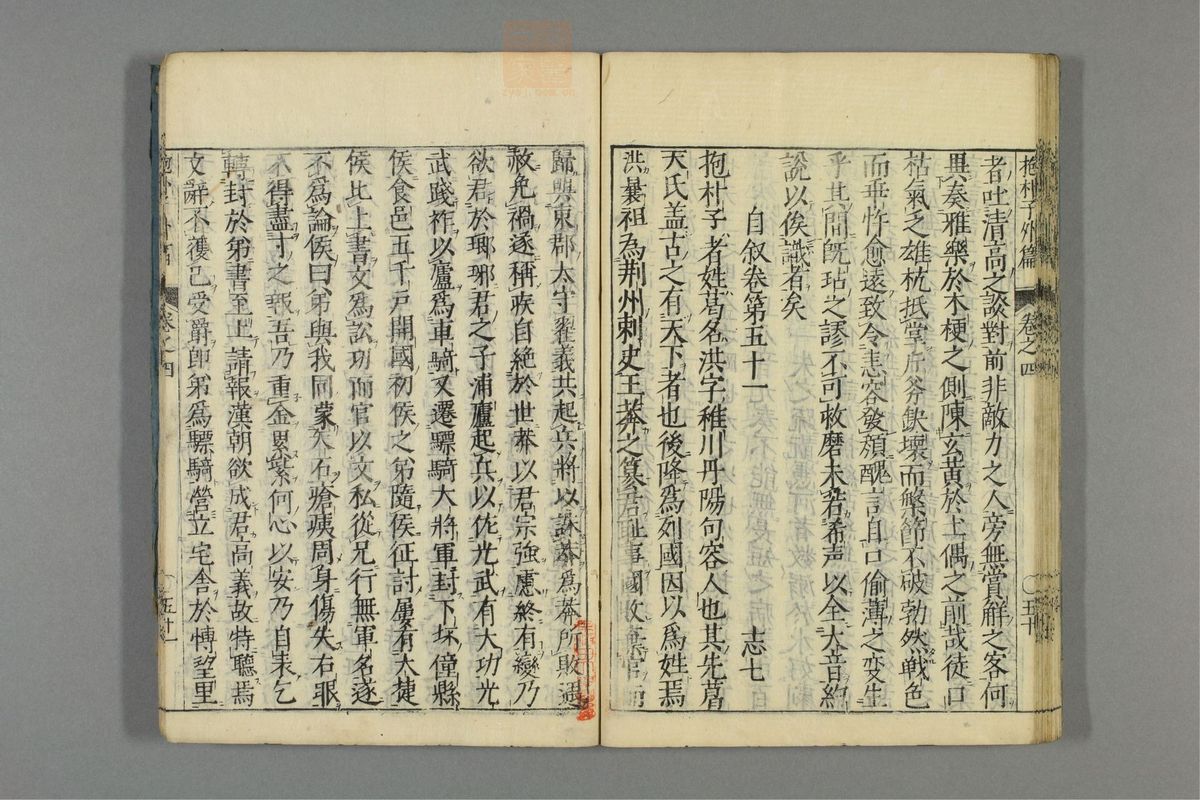 抱朴子外篇 卷之四 五十
者吐清高之談對前非敵力之人旁無賞解之客何
異奏雅樂於木梗之側陳玄黃於土偶之前哉徒口
枯氣之雄杭抵堂斤斧缺壞而槃節不破勃然戰色
而乖忤愈遠致令恚容發顔醜言自口偷薄之变生
乎其間既玷之謬不可救磨未若希声以全大音約
說以俟識者矣
自叙卷第五十一 志七
抱朴子者姓葛名洪字稚川丹陽句容人也其先葛
天氏盖古之有天下者也後降為列國因以爲姓焉
洪曩祖為荆州刺史王莽之篡君恥事國賊棄官而
歸與東郡太守翟義共起兵將以誅莽爲莽所敗遇
赦免禍遂稱疾自絶於世莽以君宗強慮終有變乃
欲君於瑯琊君之子浦廬起兵以佐光武有大功光
武踐祚以廬爲車騎又遷驃騎大將軍封下邳僮縣
侯食邑五千戸開國初侯之弟隨侯征討屢有大捷
侯比上書文爲訟功而官以文私從兄行無軍名遂
不爲論侯曰弟與我同蒙矢石瘡痍周身傷失右眼
不得盡寸之報吾乃重金累紫何心以安乃自表乞
轉封於弟書至上請報漢朝欲成君高義故特聽焉
文辭不獲已受爵即弟爲驃騎營立宅舍於愽望里
卷之四 五十一